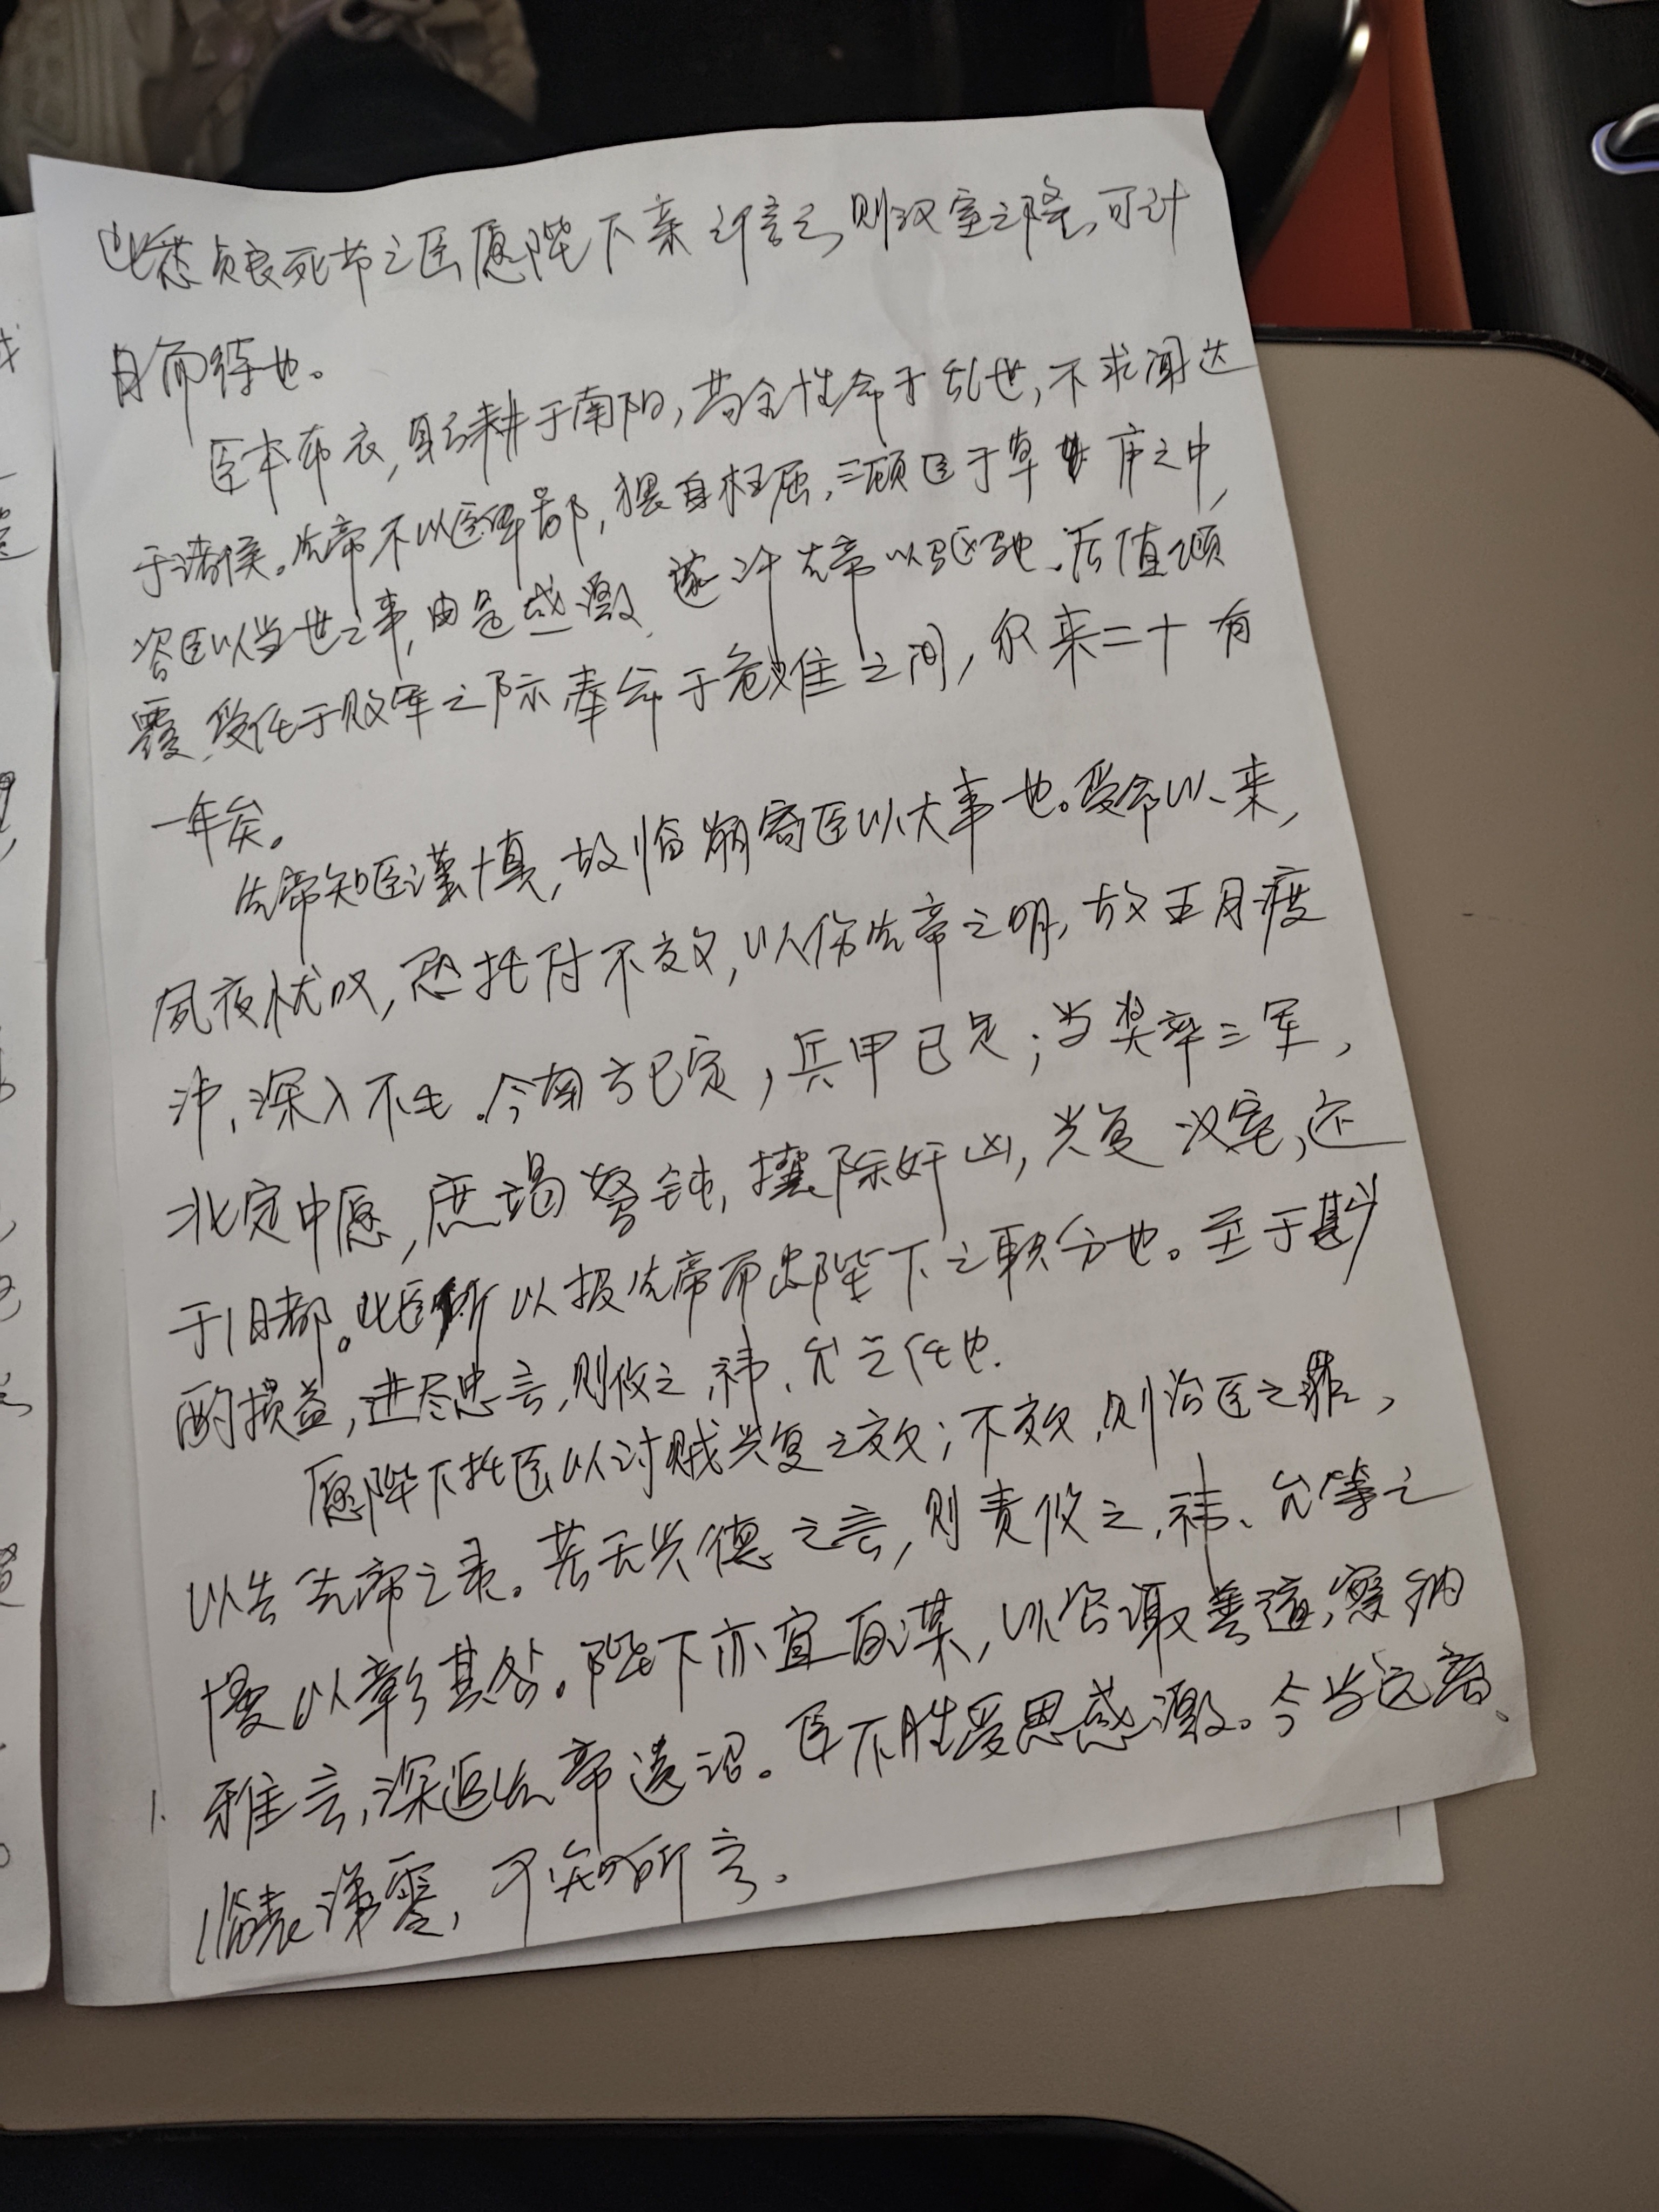 此悉贞良死节之臣愿陛下亲之信之,则汉室之隆,可计
日而待也。
臣本布衣,躬耕于南阳,苟全性命于乱世,不求闻达
于诸侯。先帝不以臣卑鄙,猥自枉屈,三顾臣于草庐之中,
咨臣以当世之事,由是感激,遂许先帝以驱驰.后值倾
覆,受任于败军之际,奉命于危难之间,尔来二十有
一年矣。
先帝知臣谨慎,故临崩寄臣以大事也。受命以来,
夙夜忧叹,恐托付不效,以伤先帝之明,故五月渡
泸,深入不毛.今南方已定,兵甲已足;当奖率三军,
北定中愿,庶竭驽钝,攘除奸凶,兴复汉室,还
于旧都。此臣所以报先帝而忠陛下之职分也。至于斟
酌损益,进尽忠言,则攸之,祎、允之任也.
愿陛下托臣以讨贼兴复之效;不效,则治臣之罪,
以告先帝之灵。若无兴德之言,则责攸之,祎、允等之
慢以彰其咎。陛下亦宜自谋,以咨诹善道,察纳
雅言,深追先帝遗诏。臣不胜受恩感激。今当远离、
临表涕零,不知所言。